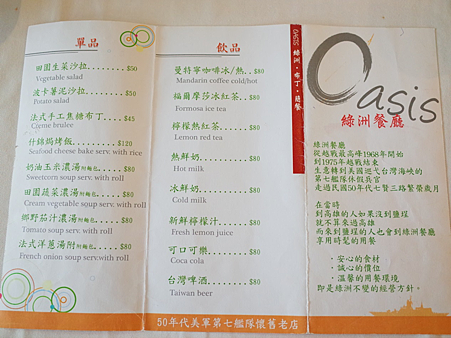 單品
田園生菜沙拉........$50
Vegetable salad
波卡薯泥沙拉........$50
Potato salad
法式手工焦糖布丁....$45
Creme brulee
什錦焗烤飯........$120
Seafood cheese bake serv. with rice
奶油玉米濃湯附麵包....$80
Sweetcorn soup serv. with roll
田園蔬菜濃湯附麵包....$80
Cream vegetable soup serv. with roll
鄉野茄汁濃湯附麵包....$80
Tomato soup serv. with roll
法式洋蔥湯附麵包....$80
French onion soup serv.with roll
飲品
曼特寧咖啡冰/熱..$80
Mandarin coffee cold/hot
福爾摩莎冰紅茶..$80
Formosa ice tea
檸檬熱紅茶......$80
Lemon red tea
熱鮮奶..........$80
Hot milk
冰鮮奶..........$80
Cold milk
新鮮檸檬汁......$80
Fresh lemon juice
可口可樂........$80
Coca cola
台灣啤酒........$80
Taiwan beer
50年代美軍第七艦隊懷舊老店
OASIS 綠洲・布丁・簡餐
Oasis
綠洲餐廳
綠洲餐廳
從越戰最高峰1968年開始
到1975年越戰結束
生意轉到美國巡弋台灣海峽的
第七艦隊休假兵官
走過民國50年代七賢三路繁榮歲月
在當時
到高雄的人如果沒到鹽埕
就不算來過高雄
而來到鹽埕的人也會到綠洲餐廳
享用時髦的用餐
・安心的食材
・誠心的價位
・溫馨的用餐環境
即是綠洲不變的經營方針。